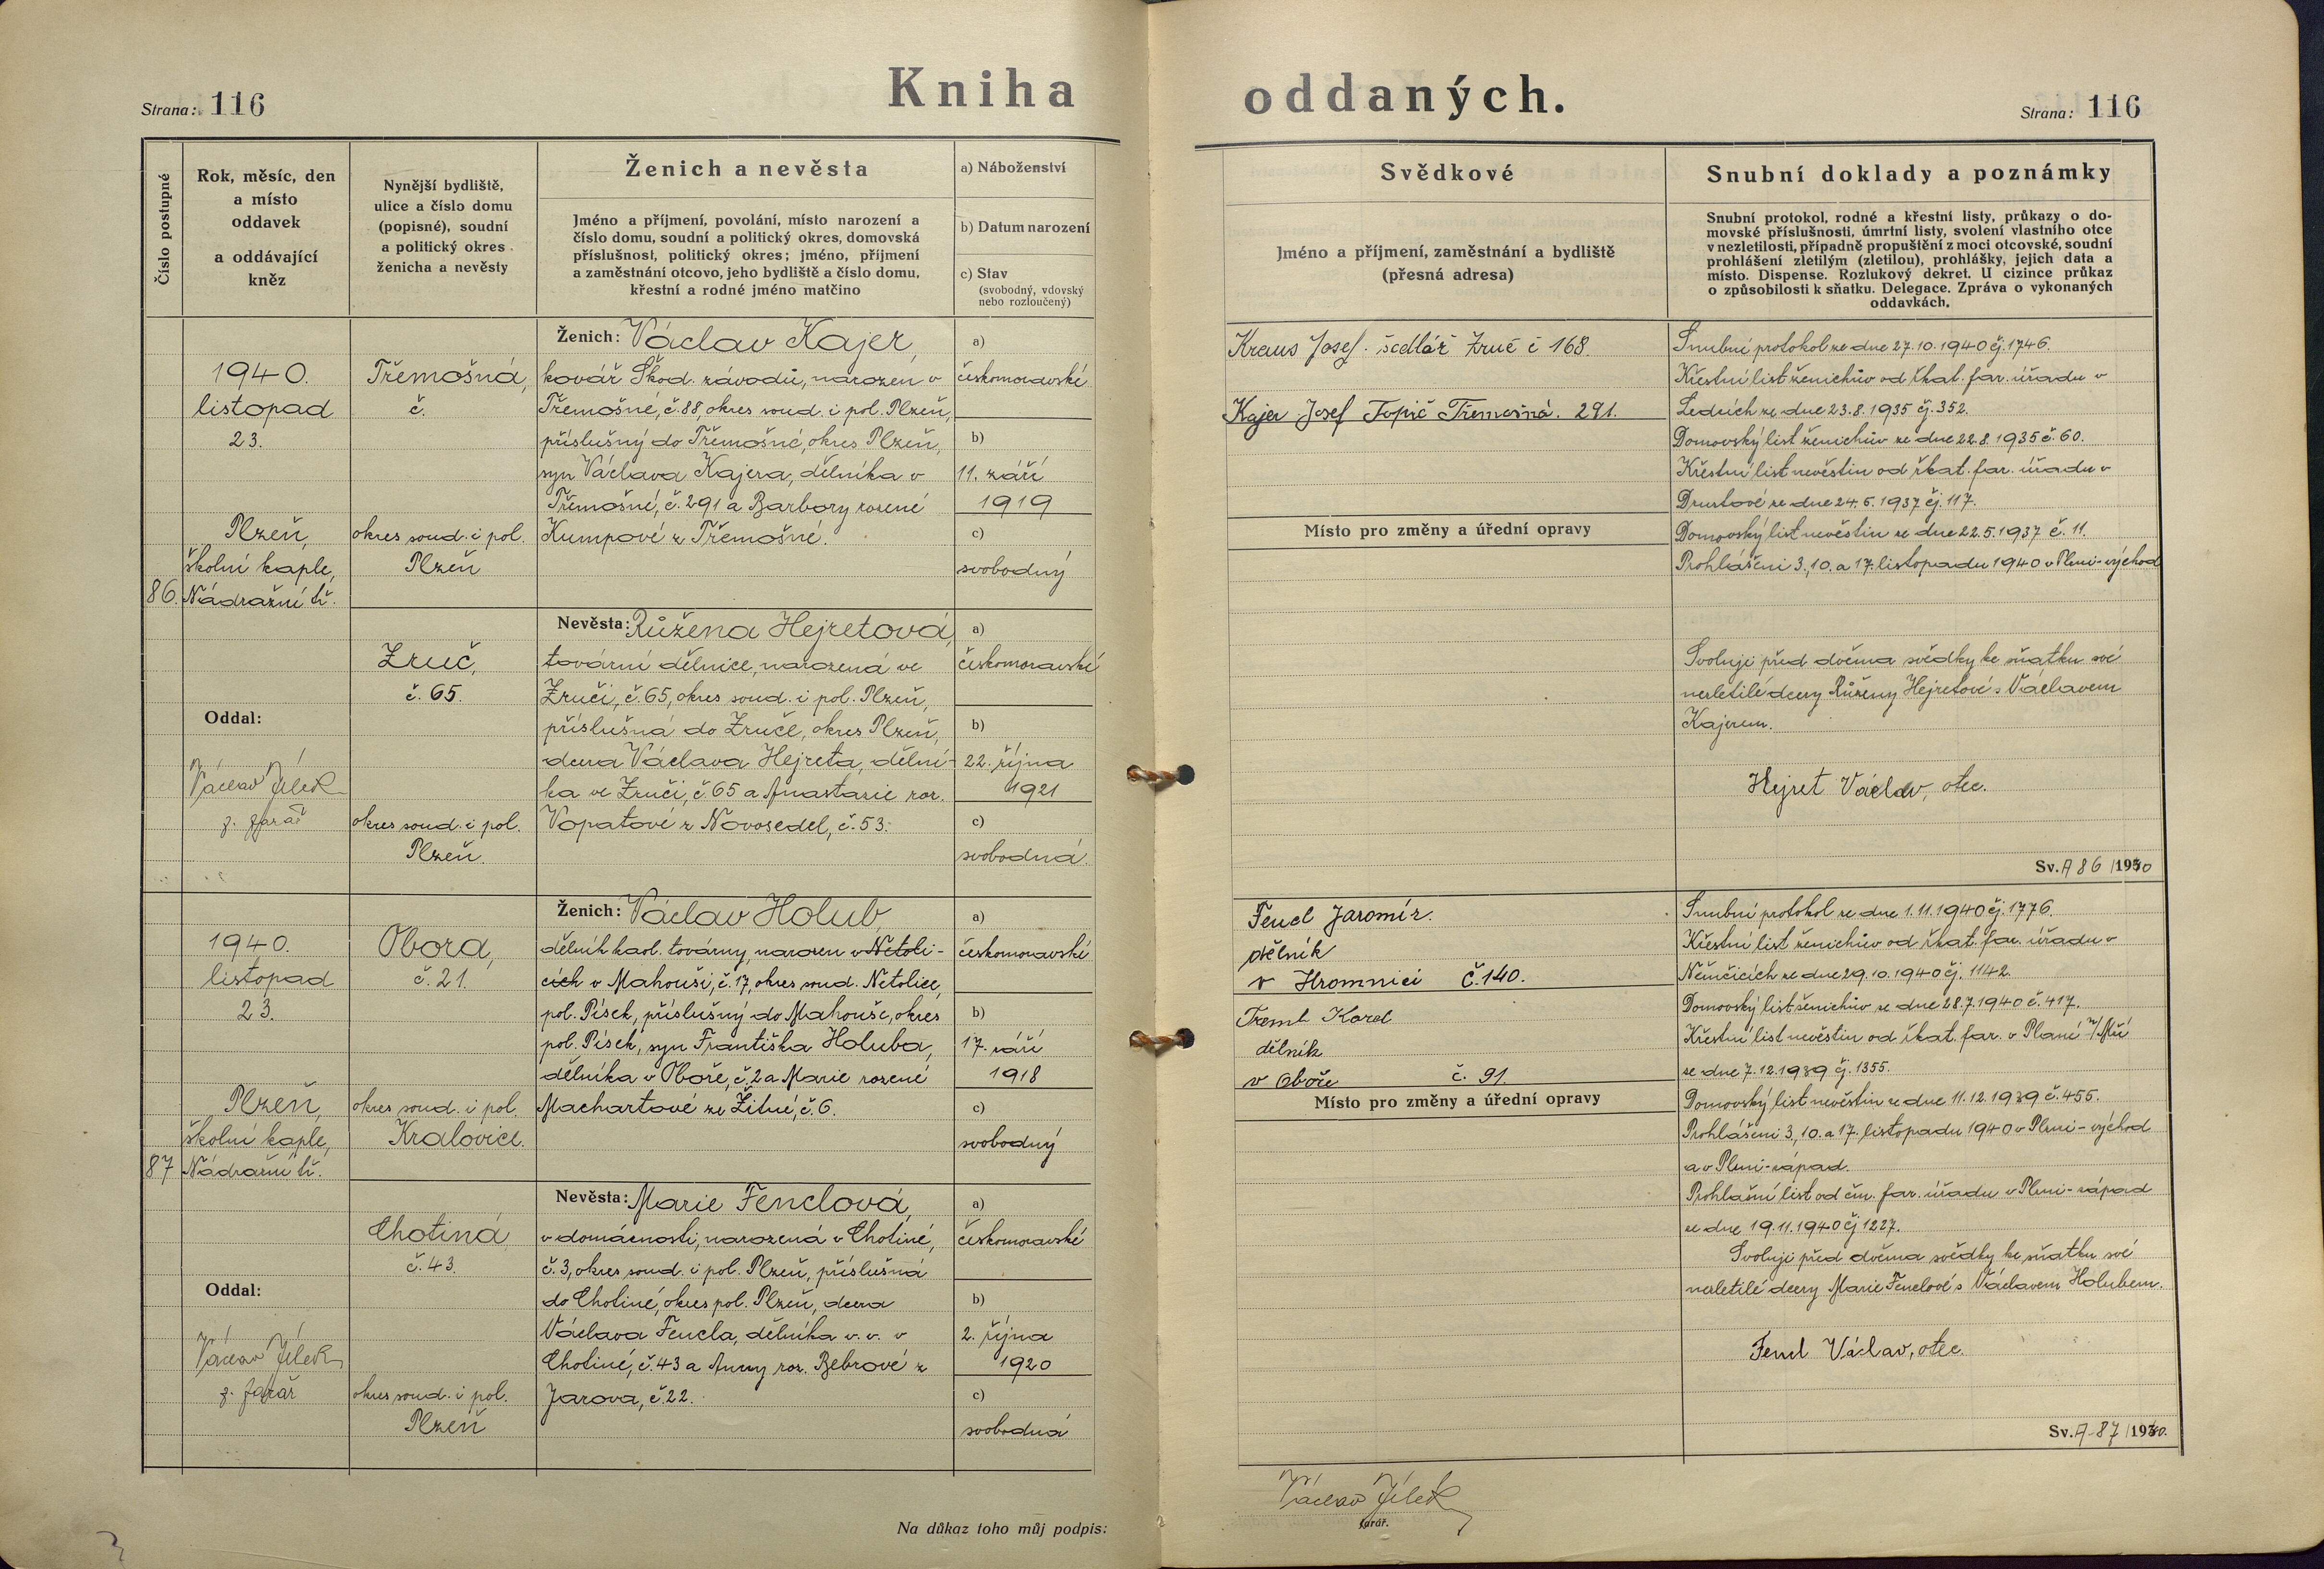 Kniha oddaných.
Strana: 116
Strana: 116
Číslo postupné
Rok, měsíc, den
a místo
oddavek
a oddávající
kněz
Nynější bydliště,
ulice a číslo domu
(popisné), soudní
a politický okres
ženicha a nevěsty
Ženich a nevěsta
Jméno a příjmení, povolání, místo narození a
číslo domu, soudní a politický okres, domovská
příslušnost, politický okres; jméno, příjmení
a zaměstnání otcovo, jeho bydliště a číslo domu,
křestní a rodné jméno matčino
a) Náboženství
b) Datum narození
c) Stav
(svobodný, vdovský
nebo rozloučený)
Svědkové
Jméno a příjmení, zaměstnání a bydliště
(přesná adresa)
Snubní doklady a poznámky
Snubní protokol, rodné a křestní listy, průkazy o do-
movské příslušnosti, úmrtní listy, svolení vlastního otce
v nezletilosti, případně propuštění z moci otcovské, soudní
prohlášení zletilým (zletilou), prohlášky, jejich data a
místo. Dispense. Rozlukový dekret. U cizince průkaz
o způsobilosti k sňatku. Delegace. Zpráva o vykonaných
oddavkách.
86.
1940.
listopad
23.
Plzeň,
školní kaple,
Nádražní tř.
Oddal:
Václav Jílek
f. farář
Třemošná,
č.
okres soud. i pol.
Plzeň
Zruč,
č. 65.
okres soud. i pol.
Plzeň.
Ženich: Václav Kajer,
kovář Škod. závodů, narozen v
Třemošné, č. 88, okres soud. i pol. Plzeň,
příslušný do Třemošné, okres Plzeň,
syn Václava Kajera, dělníka v
Třemošné, č. 291 a Barbory rozené
Kumpové z Třemošné.
a)
českomoravské
b)
11. září
1919
c)
svobodný
Nevěsta: Růžena Hejretová,
tovární dělnice, narozená ve
Zruči, č. 65, okres soud. i pol. Plzeň,
příslušná do Zruče, okres Plzeň,
dcera Václava Hejreta, dělní-
ka ve Zruči, č. 65 a Anastazie roz.
Vopatové z Novosedel, č. 53.
a)
českomoravské
b)
22. října
1921
c)
svobodná.
Kraus Josef. sedlář Zruč č 168.
Kajer Josef Topič Třemošná. 291.
Místo pro změny a úřední opravy
Snubní protokol ze dne 27.10.1940 čj. 1746.
Křestní list ženichův od řkat. far. úřadu v
Ledcích ze dne 23.8.1935 čj. 352.
Domovský list ženichův ze dne 22.8.1935 č. 60.
Křestní list nevěstin od řkat. far. úřadu v
Druztové ze dne 24.5.1937 čj. 117.
Domovský list nevěstin ze dne 22.5.1937 č. 11.
Prohlášeni 3., 10. a 17. listopadu 1940 v Plzni-východ
Svoluji před dvěma svědky ke sňatku své
nezletilé dcery Růženy Hejretové s Václavem
Kajerem.
Hejret Václav, otec.
Sv. A 86 / 1940
87
1940.
listopad
23.
Plzeň,
školní kaple,
Nádražní tř.
Oddal:
Václav Jílek
f. farář
Obora,
č. 21.
okres soud. i pol.
Kralovice.
Chotiná
č. 43.
okres soud. i pol.
Plzeň
Ženich: Václav Holub,
dělník kaol. továrny, narozen v Netoli-
cích v Mahouši, č. 17, okres soud. Netolice,
pol. Písek, příslušný do Mahouše, okres
pol. Písek, syn Františka Holuba,
dělníka v Oboře, č. 2 a Marie rozené
Machartové ze Žitné, č. 6.
a)
českomoravské
b)
17. září
1918
c)
svobodný
Nevěsta: Marie Fenclová,
v domácnosti, narozená v Chotiné,
č. 3, okres soud. i pol. Plzeň, příslušná
do Chotiné, okres pol. Plzeň, dcera
Václava Fencla, dělníka v. v. v
Chotiné, č. 43 a Anny roz. Bebrové z
Jarova, č. 22.
a)
českomoravské
b)
2. října
1920
c)
svobodná
Fencl Jaromír.
dělník
v Hromnici Č. 140.
Treml Karel
dělník
v Oboře č. 91.
Místo pro změny a úřední opravy
Snubní protokol ze dne 1.11.1940 čj. 1776.
Křestní list ženichův od řkat. far. úřadu v
Němčicích ze dne 29.10.1940 čj. 1142.
Domovský list ženichův ze dne 28.7.1940 č. 417.
Křestní list nevěstin od řkat. far. v Plané n/Mží
ze dne 7.12.1939 čj. 1355.
Domovský list nevěstin ze dne 11.12.1939 č. 455.
Prohlášeni 3., 10. a 17. listopadu 1940 v Plzni-východ
a v Plzni-západ.
Prohlašní list od čm. far. úřadu v Plzni-západ
ze dne 19.11.1940 čj 1227.
Svoluji před dvěma svědky ke sňatku své
nezletilé dcery Marie Fenclové s Václavem Holubem.
Fencl Václav, otec.
Sv. A-87 / 1940.
Na důkaz toho můj podpis:
Václav Jílek
farář.